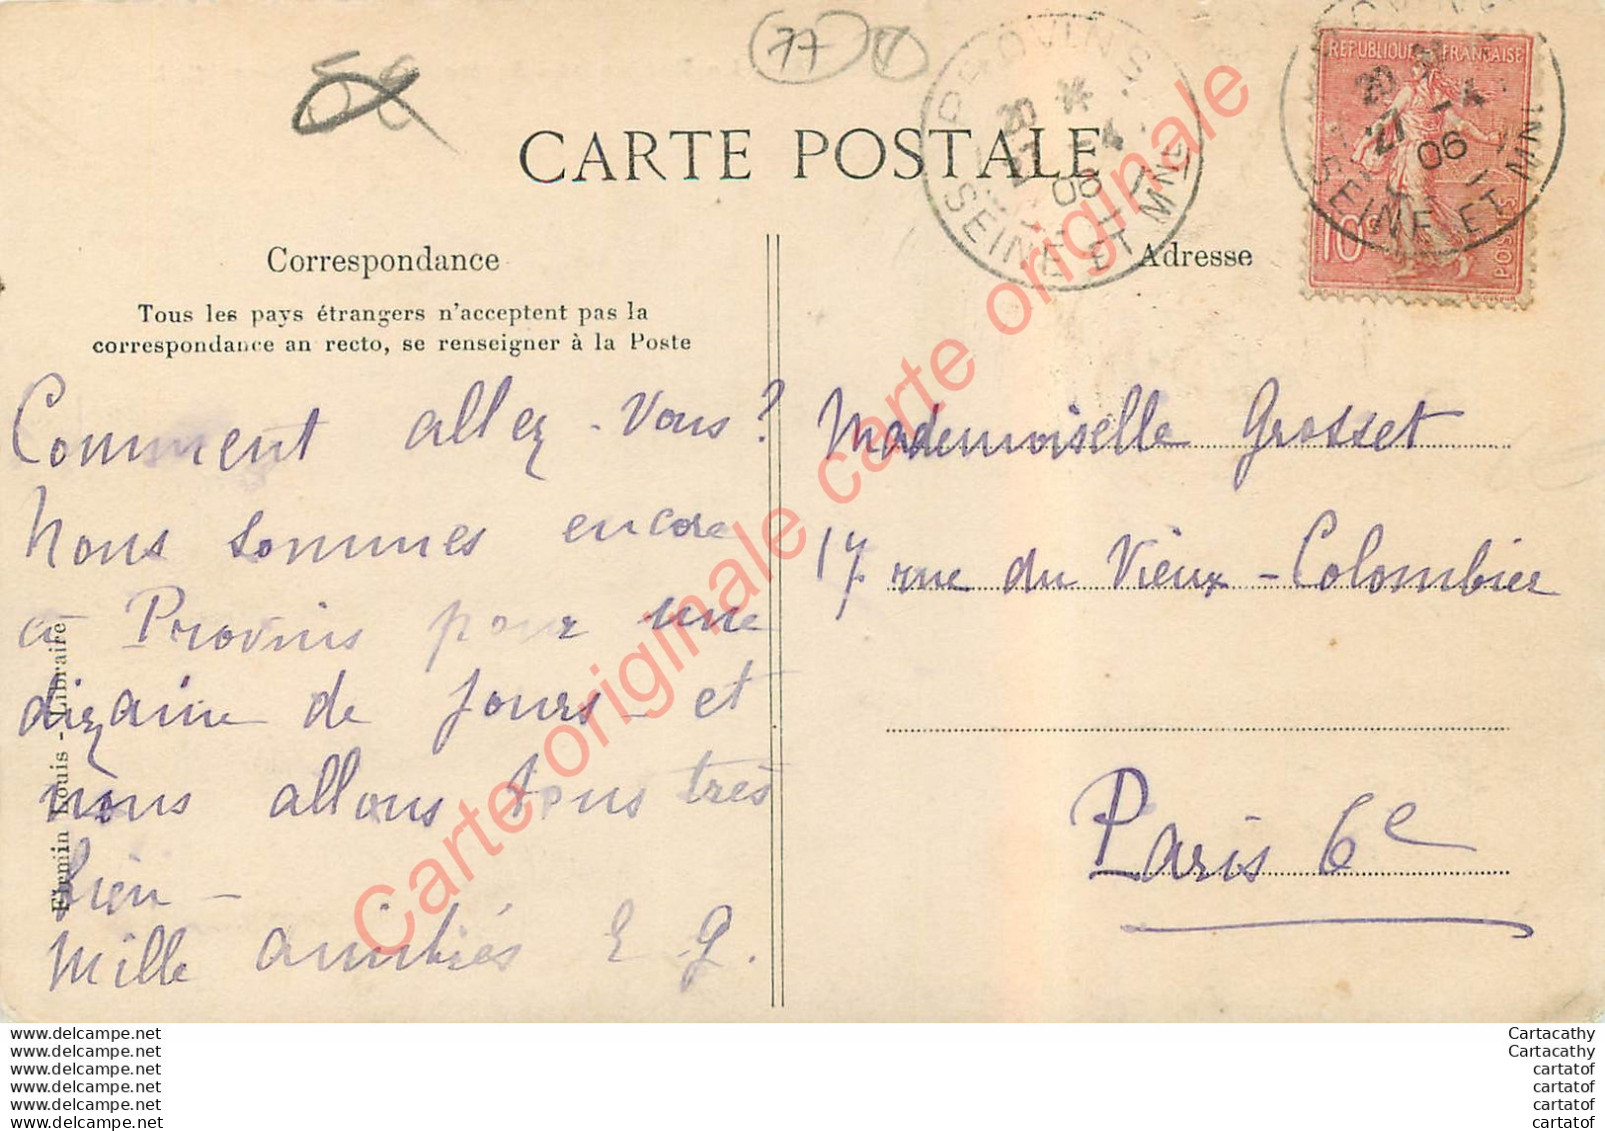 77
CARTE POSTALE
PROVINS
20
21 -4
06
SEINE ET MNE
REPUBLIQUE FRANÇAISE
10c
POSTES
20
21 -4
06
SEINE ET MNE
Correspondance
Tous les pays étrangers n'acceptent pas la
correspondance an recto, se renseigner à la Poste
Comment allez-vous?
Nous sommes encore
à Provins pour une
dizaine de jours - et
nous allons tous très
bien -
Mille amitiés E G.
Louis - Libraire
Adresse
Mademoiselle Grosset
17 rue du Vieux-Colombier
Paris 6e
Carte originale carte originale
www.delcampe.net
www.delcampe.net
www.delcampe.net
www.delcampe.net
www.delcampe.net
www.delcampe.net
Cartacathy
Cartacathy
cartatof
cartatof
cartatof
cartatof